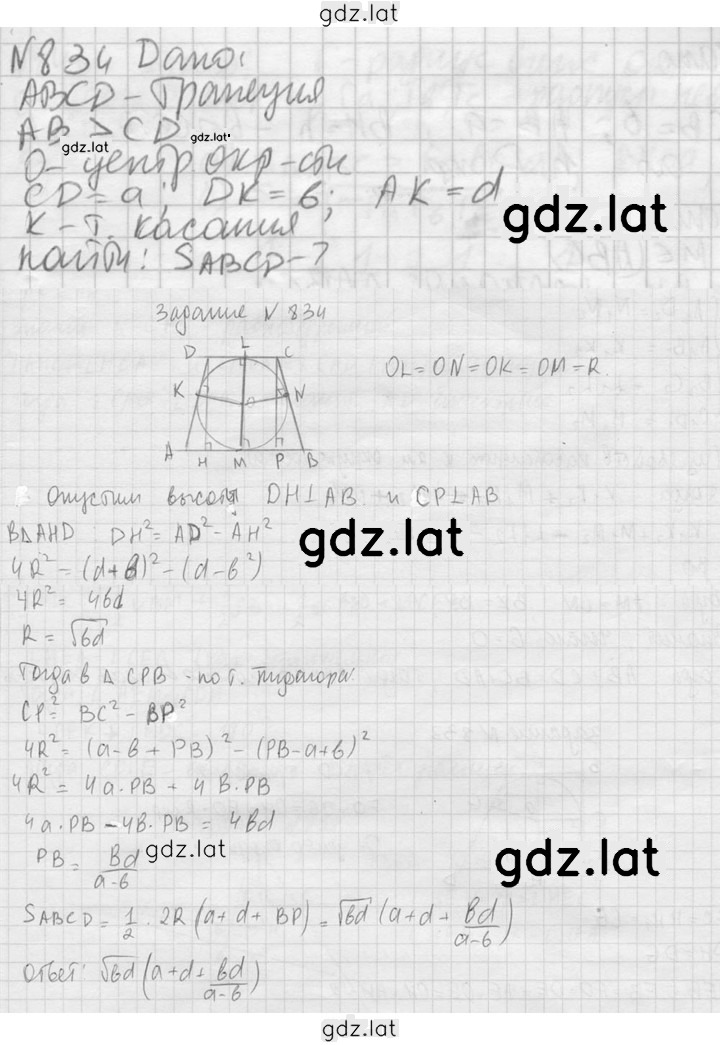 gdz.lat
N834 Дано:
ABCD - Трапеция
AB > CD
gdz.lat gdz.lat
O - центр окр-сти
CD = a; DK = в; AK = d
gdz.lat
K - т. касания
найти: SABCD - ?
Задание N 834
D L C
K N
A H M P B
OL = ON = OK = OM = R.
Опустим высоты DH⊥AB и CP⊥AB
В ΔAHD DH² = AD² - AH²
gdz.lat
4R² = (d+в)² - (d-в²)
4R² = 4вd
R = √вd
Тогда в Δ CPB - по т. Пифагора:
CP² = BC² - BP²
4R² = (a-в + PB)² - (PB-a+в)²
4R² = 4a·PB + 4 В·PB
4a·PB - 4В·PB = 4вd
PB = вd/(a-в)
gdz.lat
gdz.lat
SABCD = 1/2 · 2R (a+d+ BP) = √вd (a+d+ вd/(a-в))
ответ: √вd (a+d+ вd/(a-в))
gdz.lat